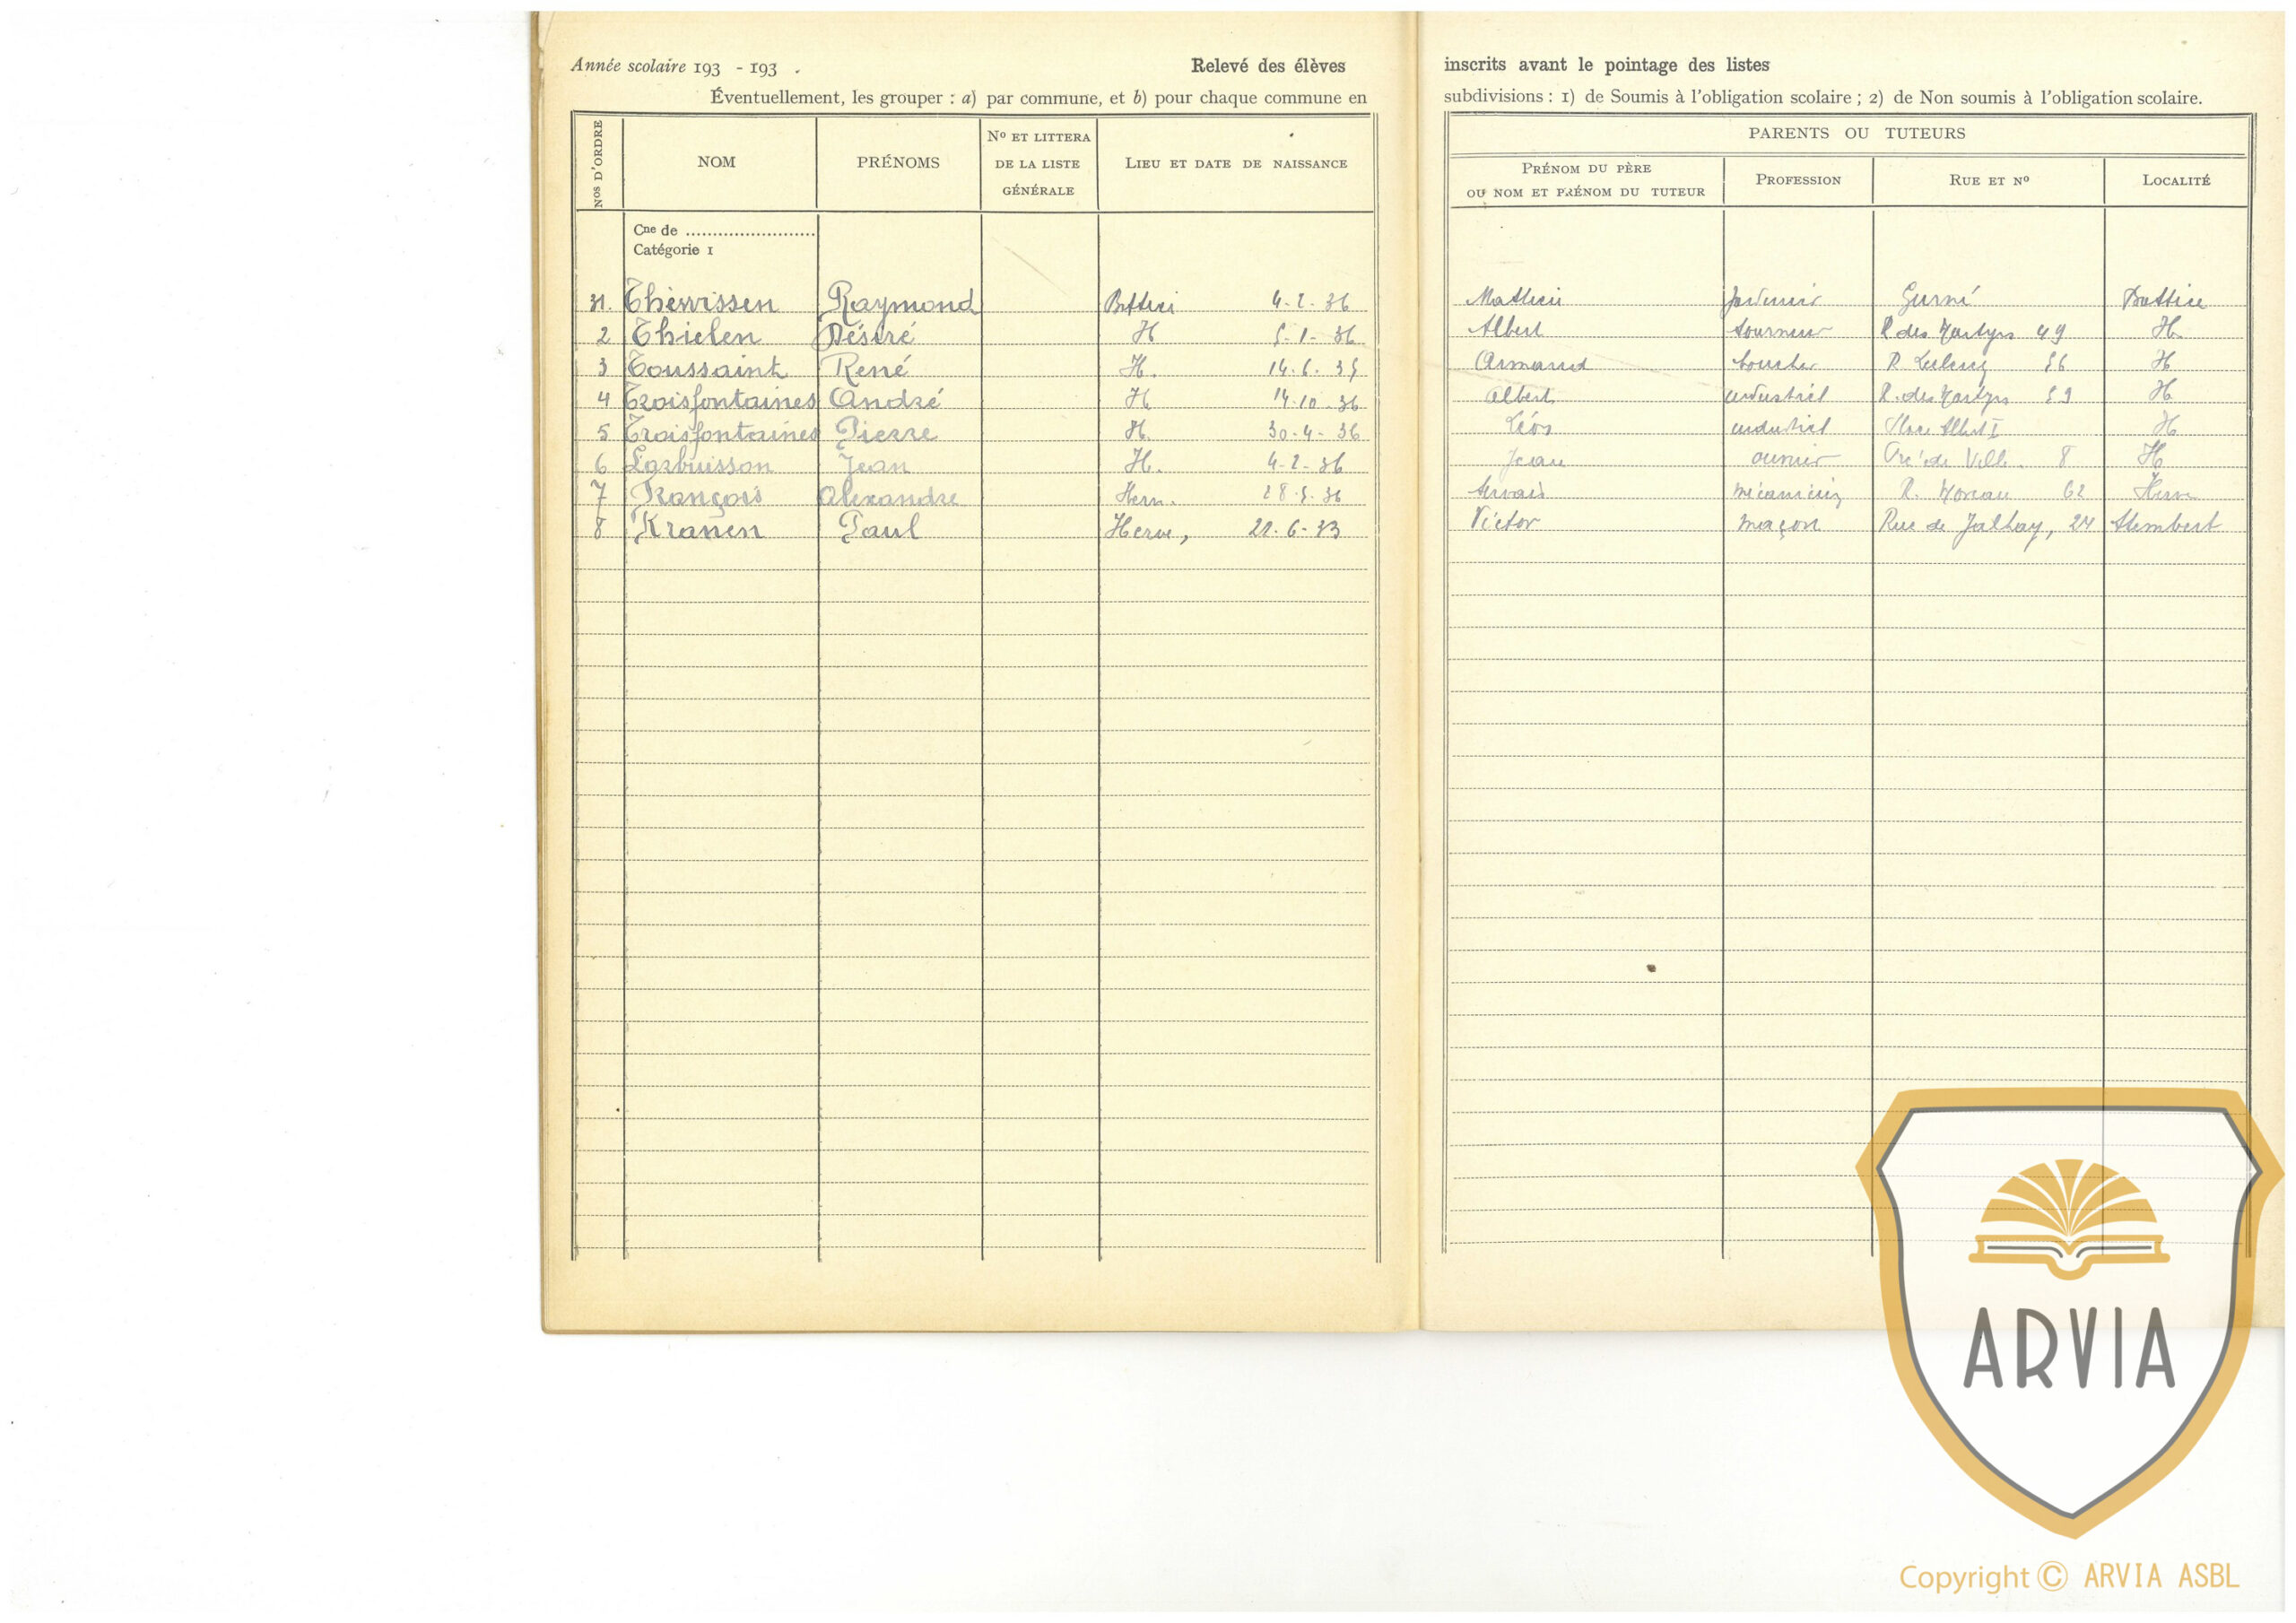 Année scolaire 193 - 193 .
Relevé des élèves inscrits avant le pointage des listes
Éventuellement, les grouper : a) par commune, et b) pour chaque commune en subdivisions : 1) de Soumis à l'obligation scolaire ; 2) de Non soumis à l'obligation scolaire.
Nos D'ORDRE NOM PRÉNOMS No ET LITTERA DE LA LISTE GÉNÉRALE LIEU ET DATE DE NAISSANCE PARENTS OU TUTEURS
PRÉNOM DU PÈRE OU NOM ET PRÉNOM DU TUTEUR PROFESSION RUE ET No LOCALITÉ
Cne de ........................
Catégorie 1
31. Thewissen Raymond Battice 4-2-36 Mathieu Battice
2 Thielen Désiré H 5-1-36 Albert tourneur R des Martyrs 49 H.
3 Toussaint René H. 14.6.35 Armand boucher R. Leclercq 56 H
4 Troisfontaines André H 14-10-36 Albert industriel R. des Martyrs 59 H
5 Troisfontaines Pierre H. 30-4-36 Léon industriel Place Albert I H
6 Jean H. 4-2-36 Jean ouvrier 8 H
7 François Alexandre Herve 28-5-36 Servais mécanicien R. Moreau 62 Herve
8 Kranen Paul Herve, 21-6-33 Victor maçon Rue de Jalhay, 24 Stembert
ARVIA
Copyright © ARVIA ASBL